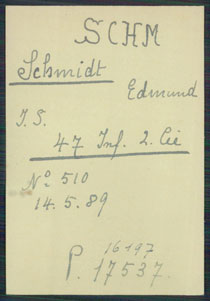 SCHM
Schmidt
Edmund
I.S.
47 Inf. 2. Cie
No 510
14.5.89
16197
P. 17537.